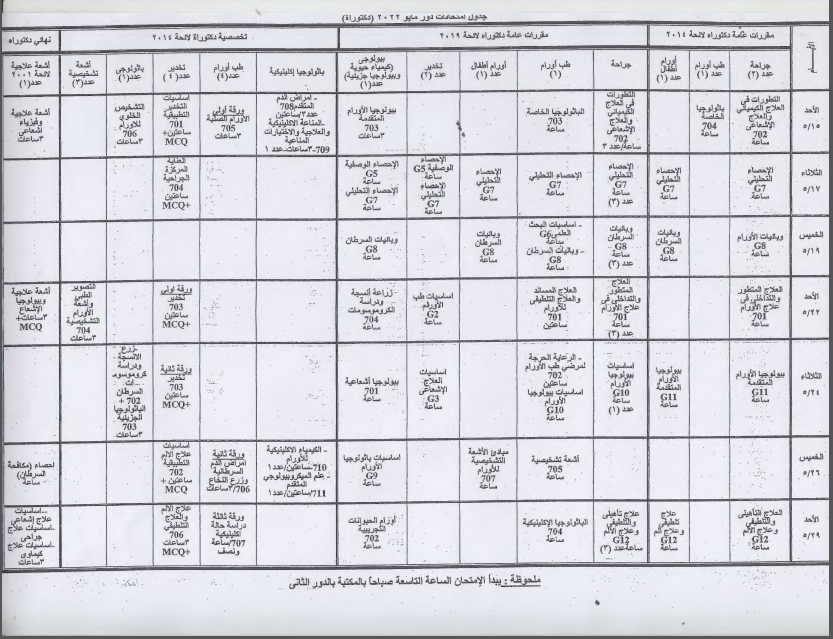 جدول امتحانات دور مايو ٢٠٢٢ (دكتوراة)
مقررات عامة دكتوراه لائحة ٢٠١٤
مقررات عامة دكتوراه لائحة ٢٠١٩
تخصصية دكتوراة لائحة ٢٠١٤
نهائي دكتوراه
جراحة
عدد (٢)
طب أورام
عدد (١)
أورام
أطفال
عدد (١)
جراحة
طب أورام
(١)
أورام أطفال
تخدير
عدد (٢)
بيولوجي
(كيمياء حيوية
وبيولوجيا جزيئية)
عدد(١)
باثولوجيا إكلينيكية
طب أورام
عدد(٤)
تخدير
عدد ( ٤ )
باثولوجى
عدد(١)
أشعة
تشخيصية
عدد(٣)
أشعة علاجية
لائحة ٢٠٠١
عدد(١)
الأحد
٥/١٥
التطورات فى
العلاج الكيميائى
والعلاج
الإشعاعى
702
٣ساعات
باثولوجيا
الخاصة
704
ساعة
التطورات
فى العلاج
الكيميائى
والعلاج
الإشعاعى
702
ساعة/عدد ٣
الباثولوجيا الخاصة
703
ساعة
بيولوجيا الأورام
المتقدمة
703
٣ساعات
- أمراض الدم
المتقدم708
عدد٣/ساعتين
-المناعة الاكلينيكية
والعلاجية والاختبارات
المناعية
709-٣ساعات-عدد ١
ورقة أولى
الأورام الصلبة
705
٣ساعات
اساسيات
التخدير
التطبيقية
701
ساعتين+
MCQ
التشخيص
الخلوى
للاورام
706
٣ساعات
أشعة علاجية
وفيزياء
اشعاعى
٣ساعات
الثلاثاء
٥/١٧
الإحصاء
التحليلي
G7
ساعة
الإحصاء
التحليلي
G7
ساعة
الإحصاء
التحليلي
G7
ساعة
عدد (٣)
الإحصاء التحليلي
G7
ساعة
الإحصاء
التحليلي
G7
ساعة
الإحصاء
الوصفية G5
ساعة
الإحصاء
التحليلي
G7
ساعة
الإحصاء الوصفية
G5
ساعة
الإحصاء التحليلي
G7
ساعة
العناية
المركزة
الجراحية
704
ساعتين
MCQ+
الخميس
٥/١٩
وبائيات الأورام
G8
ساعة
وبائيات
السرطان
G8
ساعة
وبائيات
السرطان
G8
ساعة
عدد (٣)
- اساسيات البحث
العلمى G6
ساعة
- وبائيات السرطان
G8
ساعة
وبائيات
السرطان
G8
ساعة
وبائيات السرطان
G8
ساعة
الأحد
٥/٢٢
العلاج المتطور
والتداخلى فى
علاج الأورام
701
٣ساعات
العلاج
المتطور
والتداخلى فى
علاج الأورام
701
ساعة
العلاج المساند
والعلاج التلطيفى
للأورام
701
ساعتين
اساسيات طب
الأورام
G2
ساعة
زراعة أنسجة
ودراسة
الكروموسومات
704
ساعة
ورقة اولى
تخدير
703
ساعتين
MCQ+
التصوير
الطبى
وأشعة
الأورام
التشخيصية
704
٣ساعات
أشعة علاجية
وبيولوجيا
الإشعاع
٣ساعات+
MCQ
الثلاثاء
٥/٢٤
بيولوجيا الأورام
المتقدمة
G11
ساعة
بيولوجيا
الأورام
المتقدمة
G11
ساعة
اساسيات
بيولوجيا
الأورام
G10
ساعة
عدد (١)
- الرعاية الحرجة
لمرضى طب الأورام
702
ساعتين
- اساسيات بيولوجيا
الأورام
G10
ساعة
اساسيات
العلاج
الإشعاعى
G3
ساعة
بيولوجيا أشعاعية
701
ساعة
ورقة ثانية
تخدير
703
ساعتين
MCQ+
-زرع
الانسجة
ودراسة
كروموسوم
ات
السرطان
702 +
الباثولوجيا
الجزيئية
703
٣ساعات
الخميس
٥/٢٦
أشعة تشخيصية
705
ساعة
مبادئ الأشعة
التشخيصية
للأورام
707
ساعة
اساسيات باثولوجيا
الأورام
G9
ساعة
- الكيمياء الاكلينيكية
للأورام
710-ساعتين/عدد١
- علم الميكروبيولوجي
المتقدم
711/ساعتين/عدد١
ورقة ثانية
امراض الدم
السرطانية
وزرع النخاع
706/٣ساعات
اساسيات
علاج الألم
التطبيقية
702
ساعتين +
MCQ
احصاء (مكافحة
السرطان)
ساعة
الأحد
٥/٢٩
العلاج التأهيلى
والتلطيفى
وعلاج الألم
G12
ساعة
علاج
تلطيفى
وعلاج ألم
G12
ساعة
علاج تأهيلى
والتلطيفى
وعلاج الألم
G12
ساعة/عدد (٣)
الباثولوجيا الإكلينيكية
704
ساعة
أورام الحيوانات
التجريبية
702
ساعة
ورقة ثالثة
دراسة حالة
اكلينيكية
707/ساعة
ونصف
علاج الألم
والعلاج
التلطيفي
706
٣ساعات
MCQ+
-اساسيات
علاج إشعاعى
-اساسيات علاج
جراحى
-اساسيات علاج
كيماوى
٣ساعات
ملحوظة : يبدأ الإمتحان الساعة التاسعة صباحاً بالمكتبة بالدور الثانى